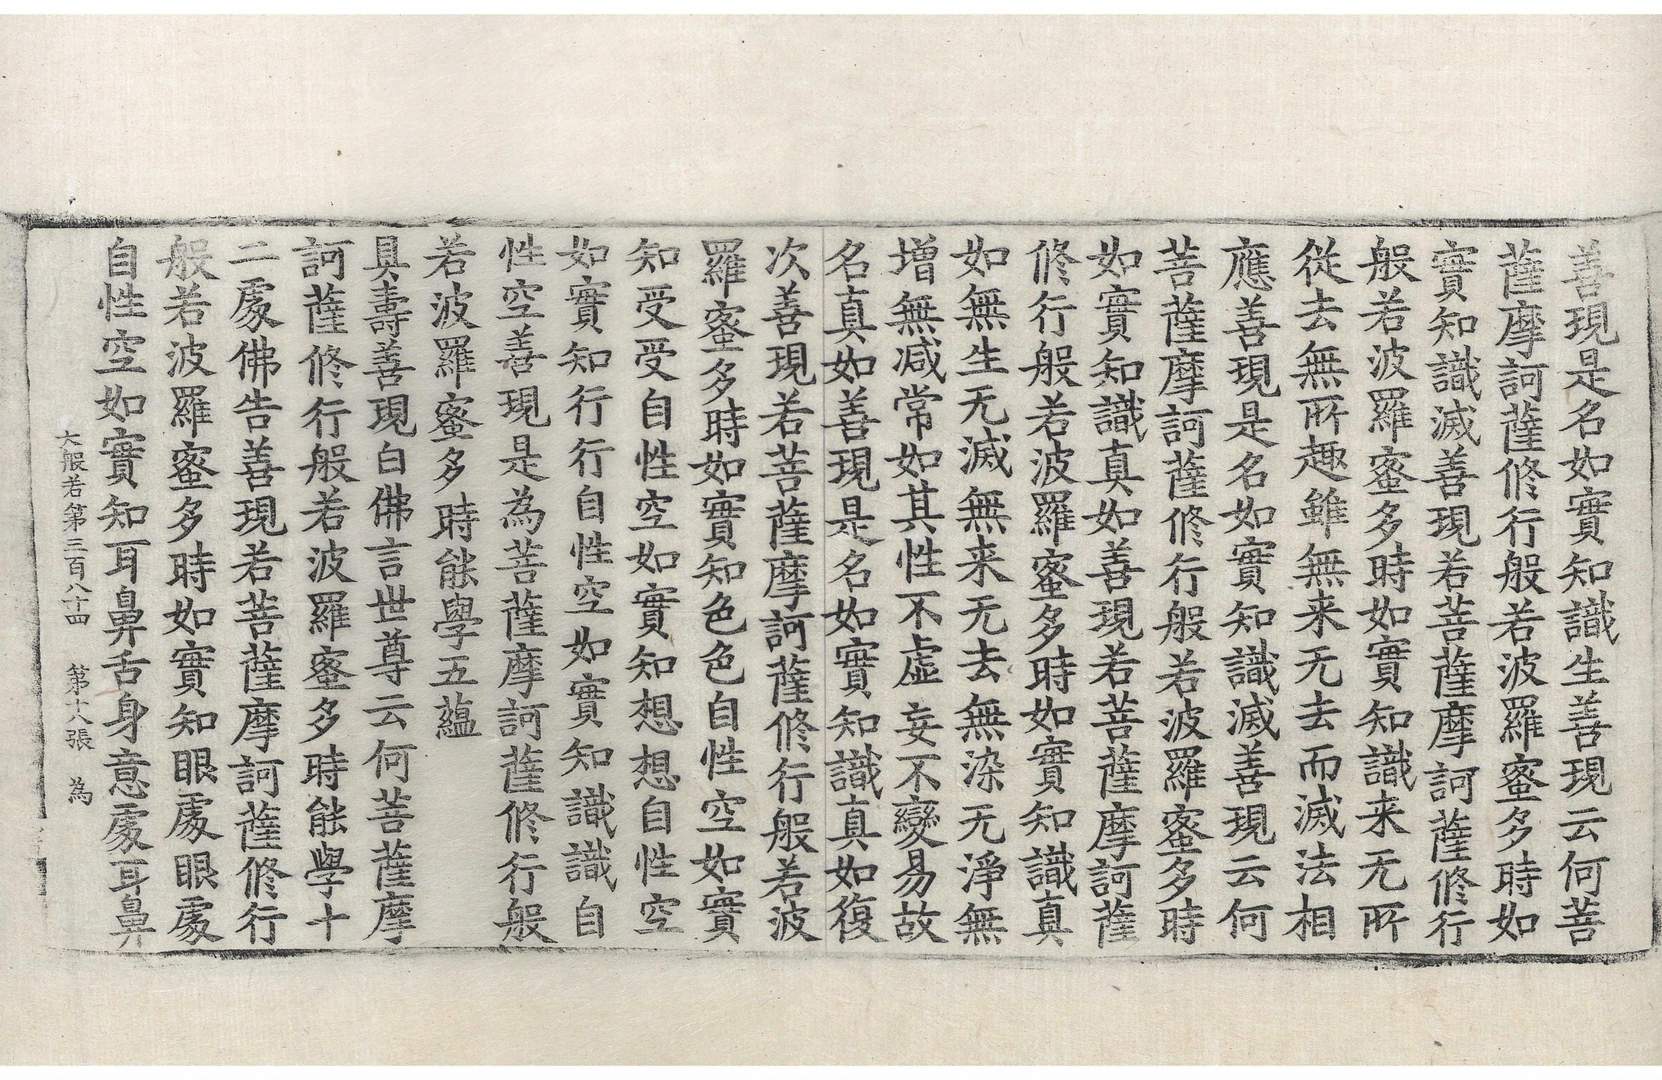 善現是名如實知識生善現云何菩
薩摩訶薩修行般若波羅蜜多時如
實知識滅善現若菩薩摩訶薩修行
般若波羅蜜多時如實知識来无所
從去無所趣雖無来无去而滅法相
應善現是名如實知識滅善現云何
菩薩摩訶薩修行般若波羅蜜多時
如實知識真如善現若菩薩摩訶薩
修行般若波羅蜜多時如實知識真
如無生无滅無来无去無染无淨無
增無减常如其性不虛妄不變易故
名真如善現是名如實知識真如復
次善現若菩薩摩訶薩修行般若波
羅蜜多時如實知色色自性空如實
知受受自性空如實知想想自性空
如實知行行自性空如實知識識自
性空善現是為菩薩摩訶薩修行般
若波羅蜜多時能學五蘊
具壽善現白佛言世尊云何菩薩摩
訶薩修行般若波羅蜜多時能學十
二處佛告善現若菩薩摩訶薩修行
般若波羅蜜多時如實知眼處眼處
自性空如實知耳鼻舌身意處耳鼻
大般若第三百八十四 第十八張 為